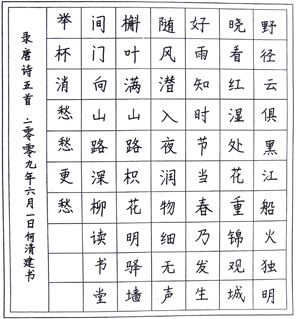 野径云俱黑江船火独明
晓看红湿处花重锦观城
好雨知时节当春乃发生
随风潜入夜润物细无声
槲叶满山路枳花明驿墙
间门向山路深柳读书堂
举杯消愁愁更愁
录唐诗五首 二零零九年六月一日何清建书